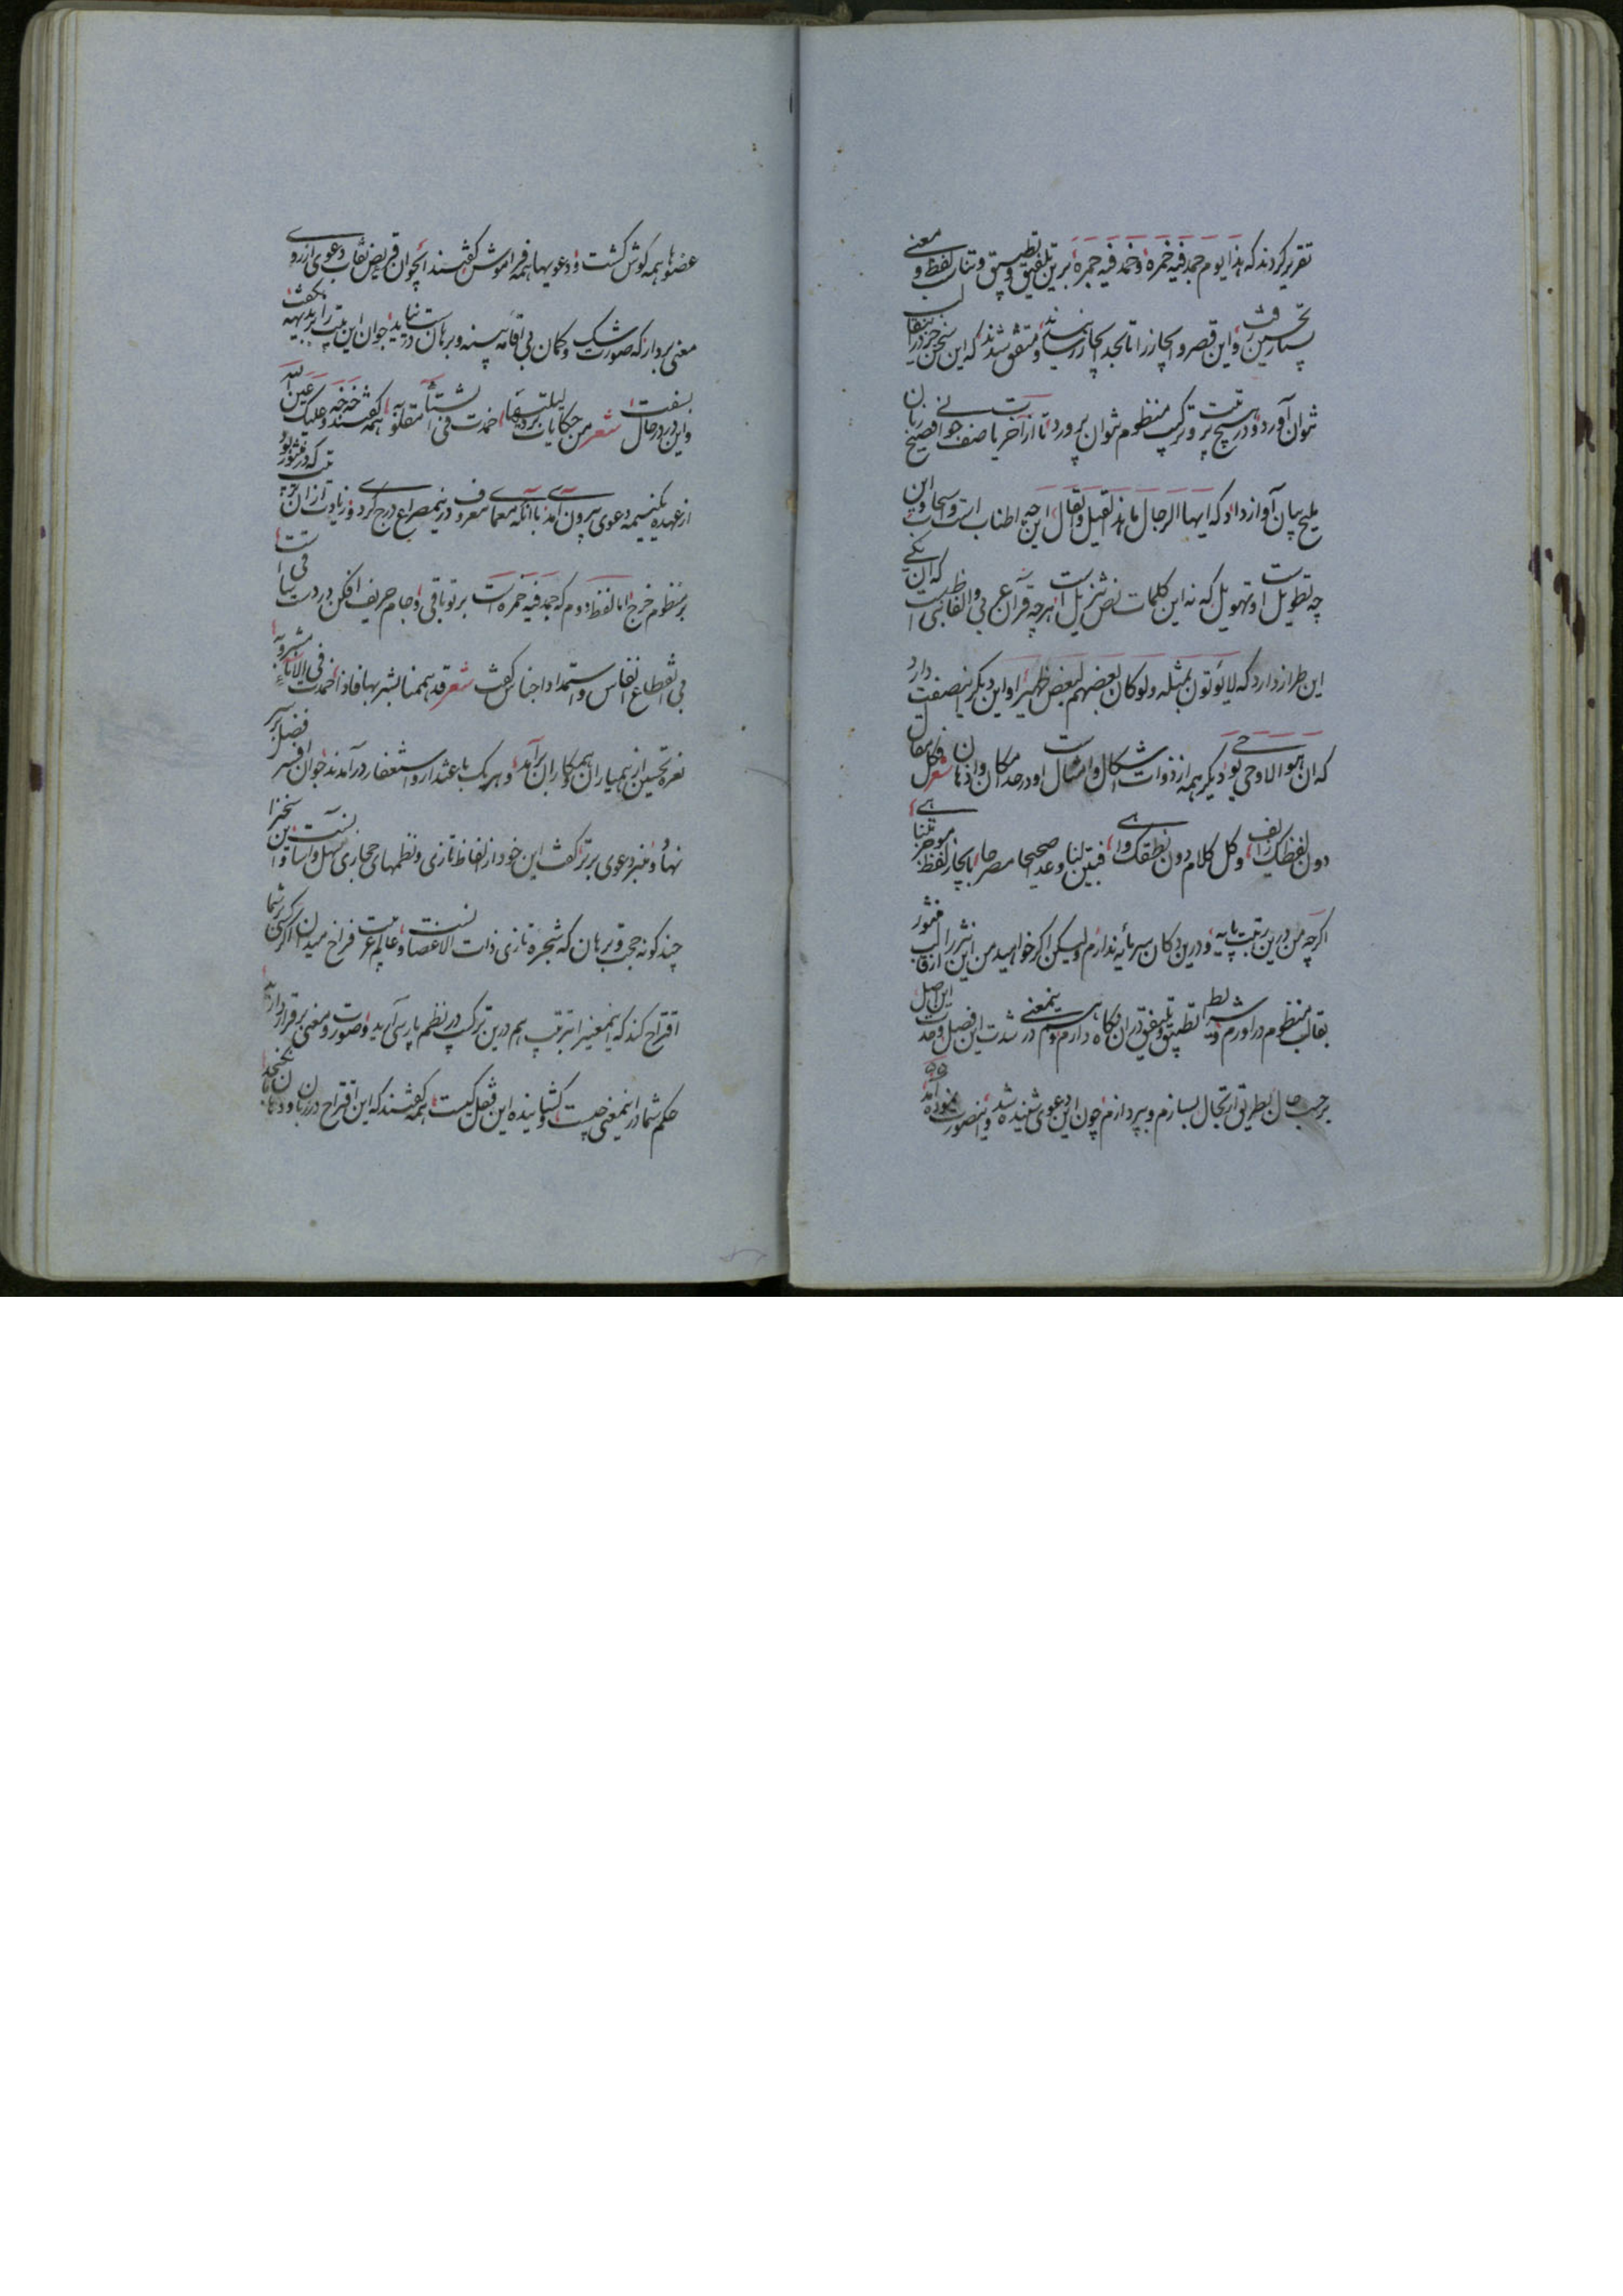 تقریر کردند که هذا یوم جمد فیه خمره و خمد فیه جمره برین تلفیق و تطبیق و تناسب لفظ و معنی
بسیار تحسین رفت و این قصر و ایجاز را تا بحد اعجاز رسانیدند و متفق شدند که این سخن جز در
نتوان آورد و در هیچ ترتیب و ترکیب منظوم نتوان پرورد تا از آخر یاصف جوانی فصیح زبان
ملیح بیان آواز داد که ایها الرجال ما هذا القیل و القال این چه اطناب و اسحاب است و این
چه تطویل و تهویل است که نه این کلمات نص تنزیل است هر چه قرآن عربی و الفاظ نبی است که آن یکی
این طراز دارد که لا یؤتون بمثله ولو کان بعضهم لبعض ظهیرا و این دیگر این صفت دارد
که ان هو الا وحی یوحی دیگر همه از ذوات اشکال و امثال است و در حد امکان و اذهان شعر فکل مقال
دون لفظک زائف و کل کلام دون نطقک واهی فبین لنا وعدا صحیحا مصرحا بایجاز لفظ
اگر چه من درین رتبت پایه و درین دکان سرمایه ندارم ولیکن اگر خواهید من این نثر را از قالب منثور
بقالب منظوم در آورم و شرایط تطبیق و تلفیق در آن نگاه دارم و هم درین معنی در شدت این فصل و حدت این اصل
بر حسب حال بطریق ارتجال بسازم و بپردازم چون این دعوی شنیده شد و این صورت نموده آمد
عضوها همه گوش گشت و دعویها همه فراموش گفتند ای جوان قریض نقاب دعوی از روی
معنی بردار که صورت شک و گمان بی اقامه بینه و برهان راست نیاید جوان این بیت را بر بدیهه بگفت
و این در در حال بسفت شعر من حکایات برد لیلتنا خمدت فی الشتاء همه گفتند خه خه و علیک عین الله
از عهده یک نیمه دعوی بیرون آمدی با آنکه معمای معروف در نیم مصراع درج کردی و زیادت از آن بیت که در منثور بود
بر منظوم خرج اما لفظ دوم که جمد فیه خمره است بر تو باقی و جام حریف افکن در دست ساقی است
بی انقطاع انفاس و استمداد اجناس گفت شعر قد هممنا بشربها فاذا خمدت فی الاناء
نعره تحسین از همه یاران و همکاران برآمد و هر یک باعتذار و استغفار درآمدند جوان افسر فضل بر سر
نهاد و منبر دعوی برتر گفت این خود از لفاظ تازی و نظمهای حجازی سهل و آسانست و این سخن را
چند گونه حجت و برهان که شجره تازی ذات الاغصانست و عالم عربیت فراخ میدان اگر کسی بر شما
اقتراح کند که این معنی را بترتیب هم درین ترکیب در نظم پارسی آرید و صورت و معنی برقرار دارید
حکم شما در این معنی چیست و گشاینده این قفل کیست همه گفتند که این اقتراح در زبان و دهان نگنجد